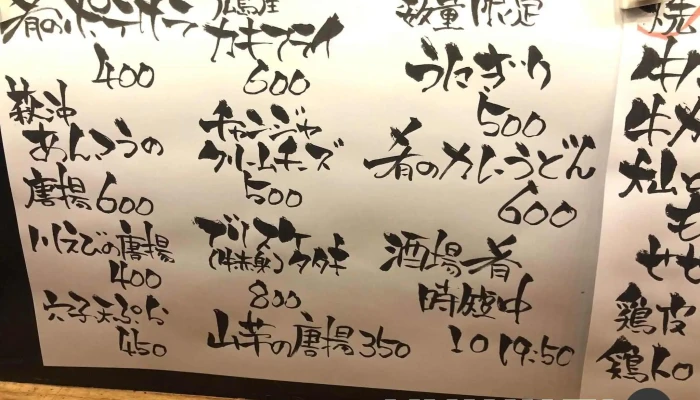 肴のポテサラ
400
萩沖
あんこうの
唐揚600
川えびの唐揚
400
穴子天ぷら
450
広島産
カキフライ
600
チャンジャ
クリームチーズ
500
(牛赤身)タタキ
800
山芋の唐揚350
数量限定
うにぎり
500
肴のカレーうどん
600
酒場肴
中
19:50
焼
鶏皮